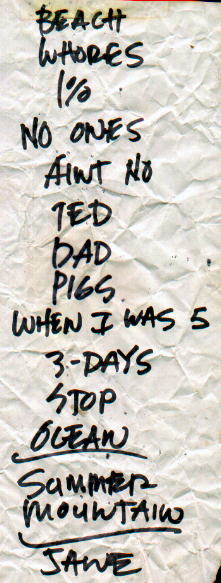 BEACH
WHORES
1%
NO ONES
AINT NO
TED
DAD
PIGS
WHEN I WAS 5
3-DAYS
STOP
OCEAN
SUMMER
MOUNTAIN
JANE